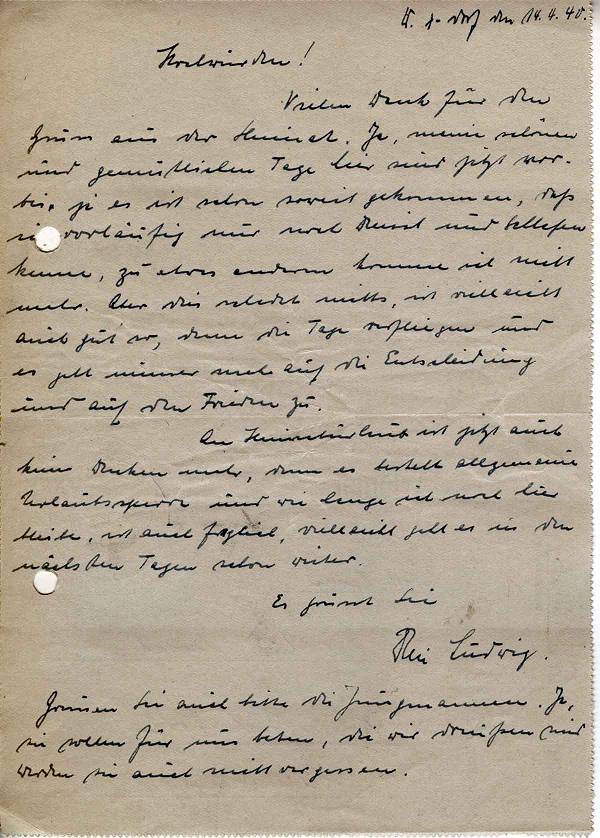 den 14.4.40.
Hochwürden!
Vielen Dank für den
Gruss aus der Heimat. Ja, meine schönen
und gemütlichen Tage hier sind jetzt vor-
bei, ja es ist schon soweit gekommen, daß
ich vorläufig nur noch Dienst und Schlafen
kenne, zu etwas anderem komme ich nicht
mehr. Aber dies schadet nichts, ist vielleicht
auch gut so, denn die Tage verfliegen und
es geht immer mehr auf die Entscheidung
und auf den Frieden zu.
An Heimaturlaub ist jetzt auch
kein Denken mehr, denn es besteht allgemeine
Urlaubssperre und wie lange ich noch hier
bleibe, ist auch fraglich, vielleicht geht es in den
nächsten Tagen schon weiter.
Es grüsst Sie
Ludwig.
Grüssen Sie auch bitte die Jungmannen. Ja,
sie sollen für uns beten, die wir draußen sind
werden sie auch nicht vergessen.